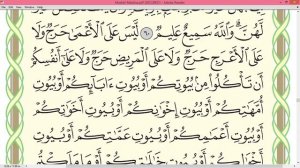 لَّهُنَّ ۗ وَاللَّهُ سَمِيعٌ عَلِيمٌ ٦٠ لَّيْسَ عَلَى الْأَعْمَىٰ حَرَجٌ وَلَا
عَلَى الْأَعْرَجِ حَرَجٌ وَلَا عَلَى الْمَرِيضِ حَرَجٌ وَلَا عَلَىٰ أَنفُسِكُمْ
أَن تَأْكُلُوا مِن بُيُوتِكُمْ أَوْ بُيُوتِ ءَابَآئِكُمْ أَوْ بُيُوتِ
أُمَّهَٰتِكُمْ أَوْ بُيُوتِ إِخْوَٰنِكُمْ أَوْ بُيُوتِ أَخَوَٰتِكُمْ
أَوْ بُيُوتِ أَعْمَٰمِكُمْ أَوْ بُيُوتِ عَمَّٰتِكُمْ أَوْ بُيُوتِ